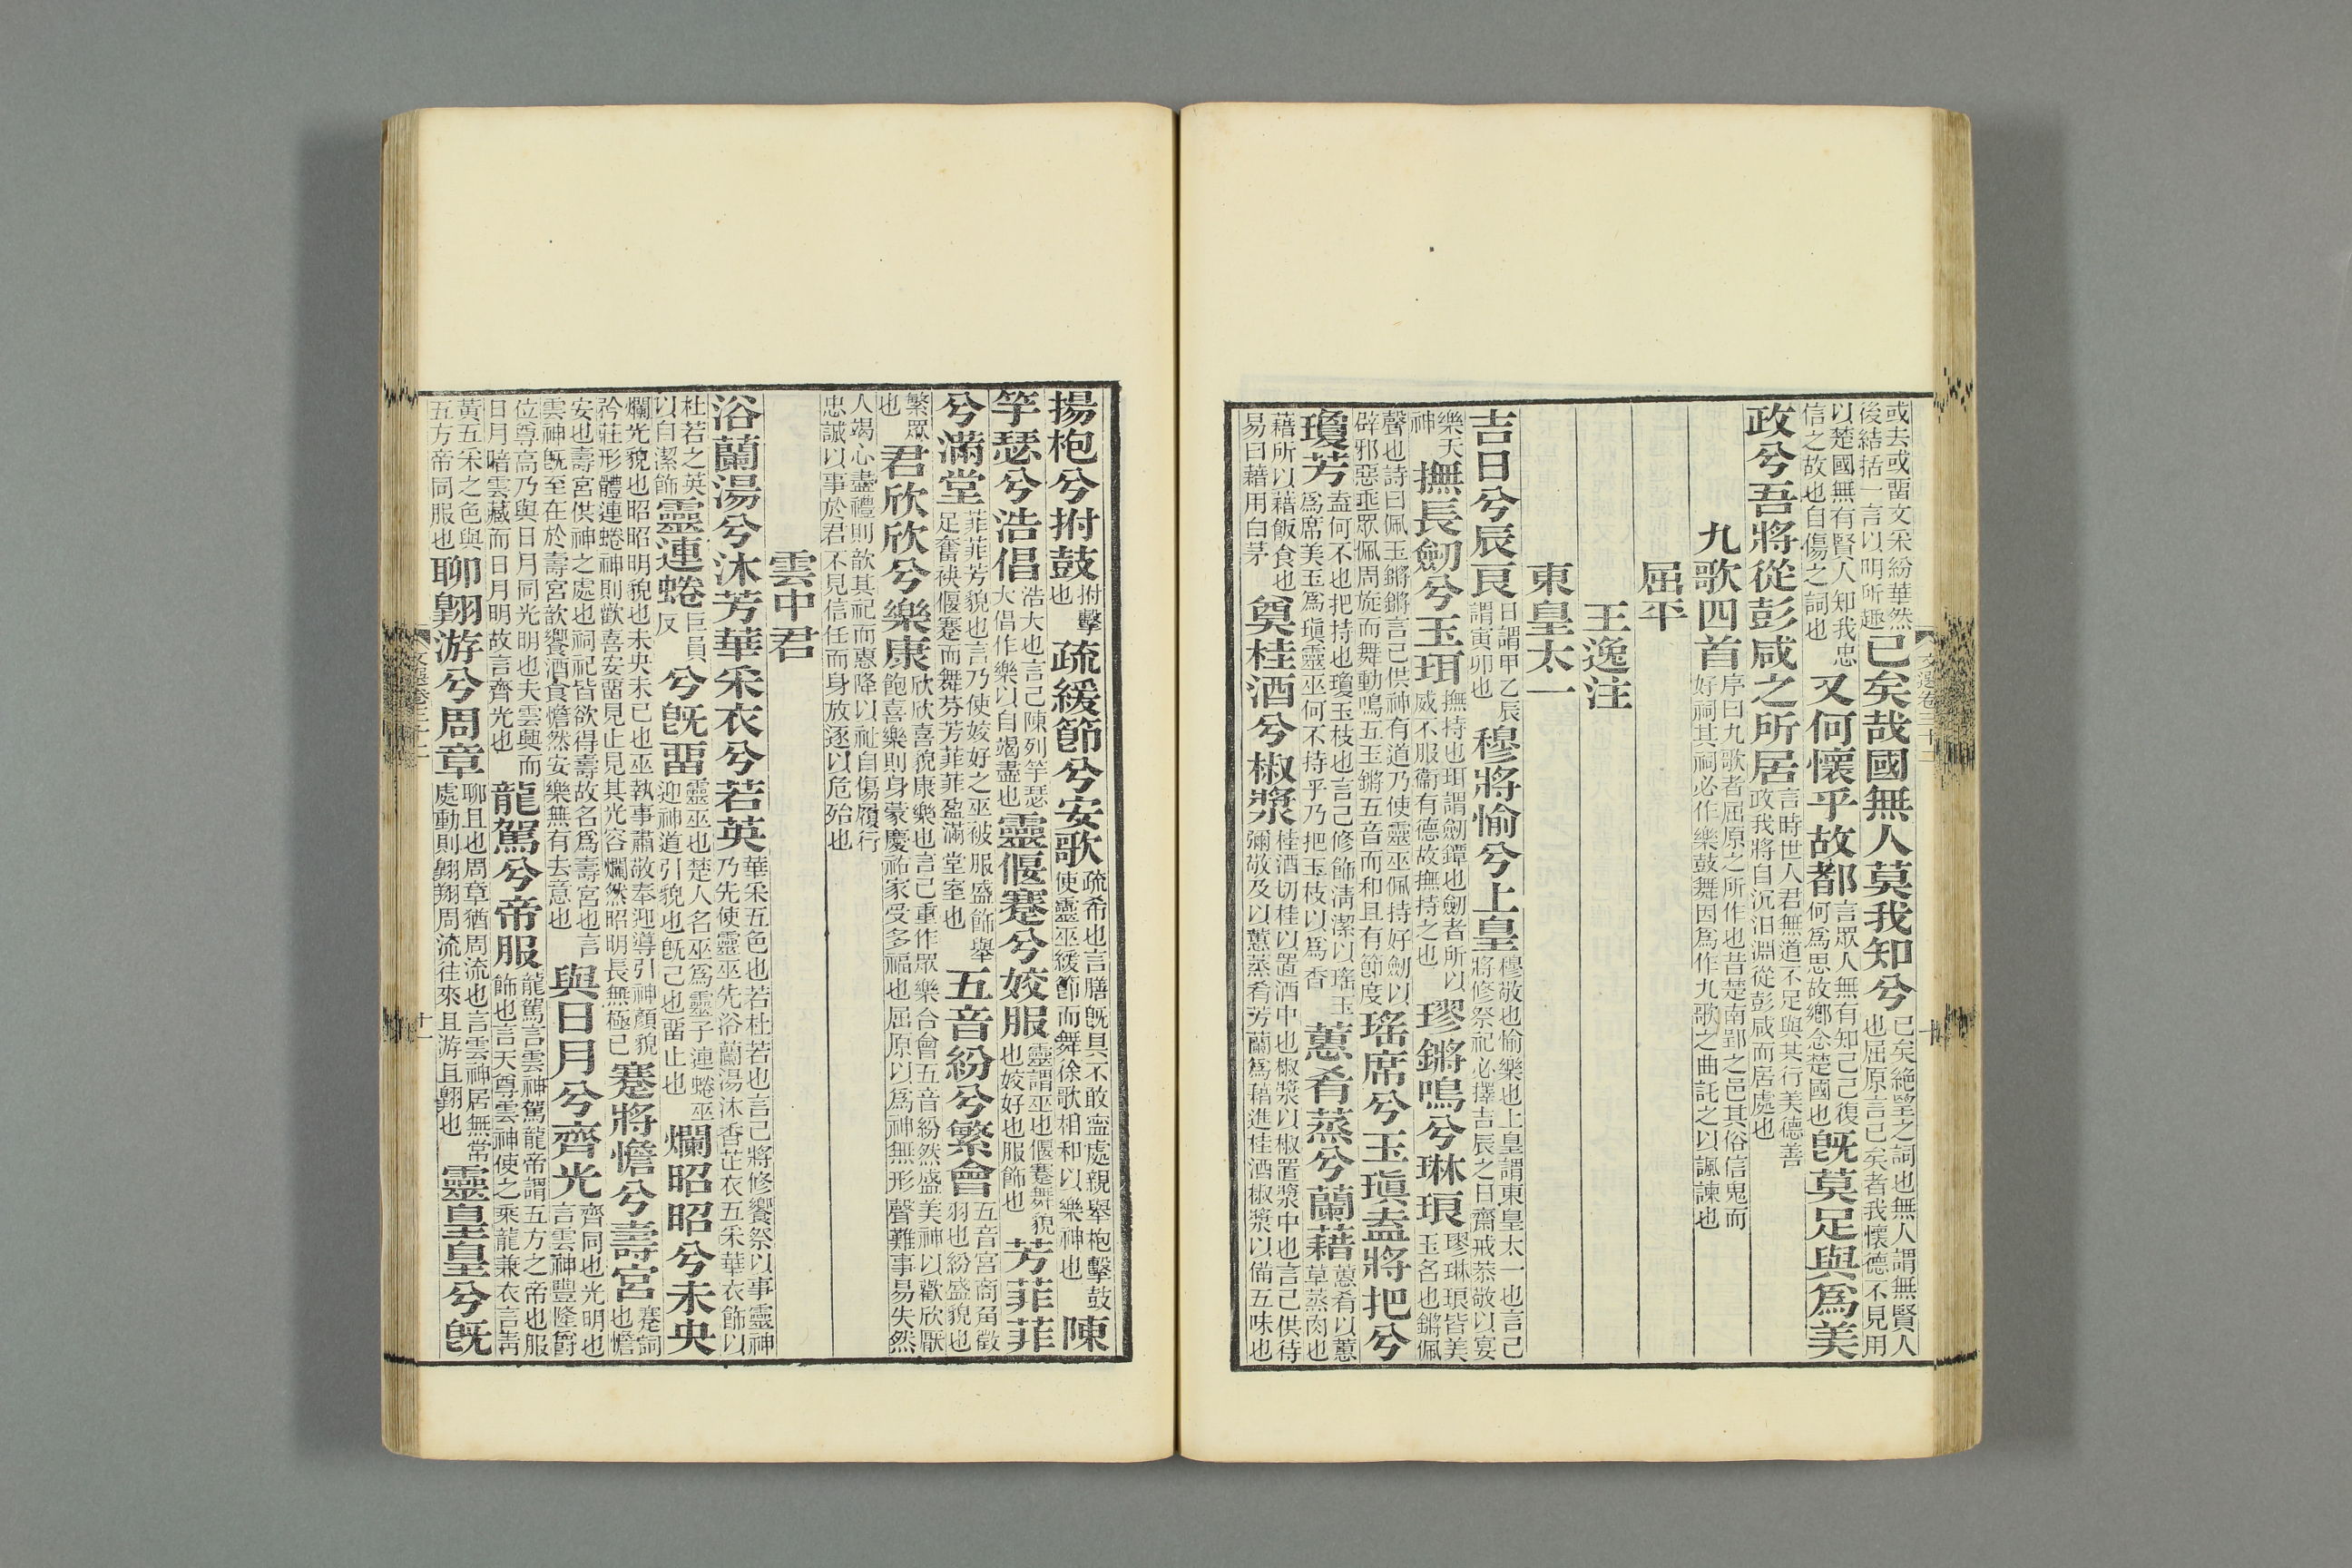 或去或畱文采紛華然後結括一言以明所趣已矣哉國無人莫我知兮已矣絶望之詞也無人謂無賢人也屈原言已矣者我懷德不見用
以楚國無有賢人知我忠信之故也自傷之詞也又何懷乎故都言眾人無有知己己復何爲思故鄉念楚國也旣莫足與爲美
政兮吾將從彭咸之所居言時世人君無道不足與其行美德善政我將自沉汨淵從彭咸而居處也
九歌四首序曰九歌者屈原之所作也昔楚南郢之邑其俗信鬼而好祠其祠必作樂鼓舞因爲作九歌之曲託之以諷諫也
屈平
王逸注
東皇太一
吉日兮辰良日謂甲乙辰謂寅卯也穆將愉兮上皇穆敬也愉樂也上皇謂東皇太一也言己將修祭祀必擇吉辰之日齋戒恭敬以宴
樂天神撫長劒兮玉珥撫持也珥謂劒鐔也劒者所以威不服衞有德故撫持之也璆鏘鳴兮琳琅璆琳琅皆美玉名也鏘佩
聲也詩曰佩玉鏘鏘言己供神有道乃使靈巫佩持好劒以辟邪惡垂眾佩周旋而舞動鳴五玉鏘五音而和且有節度瑤席兮玉瑱盍將把兮
瓊芳盍何不也把持也瓊玉枝也言己修飾清潔以瑤玉爲席美玉爲瑱靈巫何不持乎乃把玉枝以爲香蕙肴蒸兮蘭藉蕙肴以蕙草蒸肉也
藉所以藉飯食也易曰藉用白茅奠桂酒兮椒漿桂酒切桂以置酒中也椒漿以椒置漿中也言己供待彌敬及以蕙蒸肴芳蘭爲藉進桂酒椒漿以備五味也
文選卷三十二
十
揚枹兮拊鼓拊擊也疏緩節兮安歌疏希也言膳旣具不敢寧處親舉枹擊鼓使靈巫緩節而舞徐歌相和以樂神也陳
竽瑟兮浩倡浩大也言己陳列竽瑟大倡作樂以自竭盡也靈偃蹇兮姣服靈謂巫也偃蹇舞貌也姣好也服飾也芳菲菲
兮滿堂菲菲芳貌也言乃使姣好之巫被服盛飾舉足奮袂偃蹇而舞芬芳菲菲盈滿堂室也五音紛兮繁會五音宮商角徵羽也紛盛貌也
繁眾也君欣欣兮樂康欣欣喜貌康樂也言己重作眾樂合會五音紛然盛美神以歡欣厭飽喜樂則身蒙慶祐家受多福也屈原以爲神無形聲難事易失然
人竭心盡禮則歆其祀而惠降以祉自傷履行忠誠以事於君不見信任而身放逐以危殆也
雲中君
浴蘭湯兮沐芳華采衣兮若英華采五色也若杜若也言己將修饗祭以事靈神乃先使靈巫先浴蘭湯沐香芷衣五采華衣飾以
杜若之英以自潔飾靈連蜷巨員反兮旣畱靈巫也楚人名巫爲靈子連蜷巫迎神道引貌也旣已也畱止也爛昭昭兮未央
爛光貌也昭昭明貌也未央未已也巫執事肅敬奉迎導引神顏貌矜莊形體連蜷神則歡喜安畱見止見其光容爛然昭明長無極已蹇將憺兮壽宮蹇詞也憺
安也壽宮供神之處也祠祀皆欲得壽故名爲壽宮也言雲神旣至在於壽宮歆饗酒食憺然安樂無有去意也與日月兮齊光齊同也光明也言雲神豐隆爵
位尊高乃與日月同光明也夫雲興而日月暗雲藏而日月明故言齊光也龍駕兮帝服龍駕言雲神駕龍帝謂五方之帝也服飾也言天尊雲神使之乘龍兼衣言靑
黃五采之色與五方帝同服也聊翺游兮周章聊且也周章猶周流也言雲神居無常處動則翺翔周流往來且游且翺也靈皇皇兮旣
文選卷三十二
十一